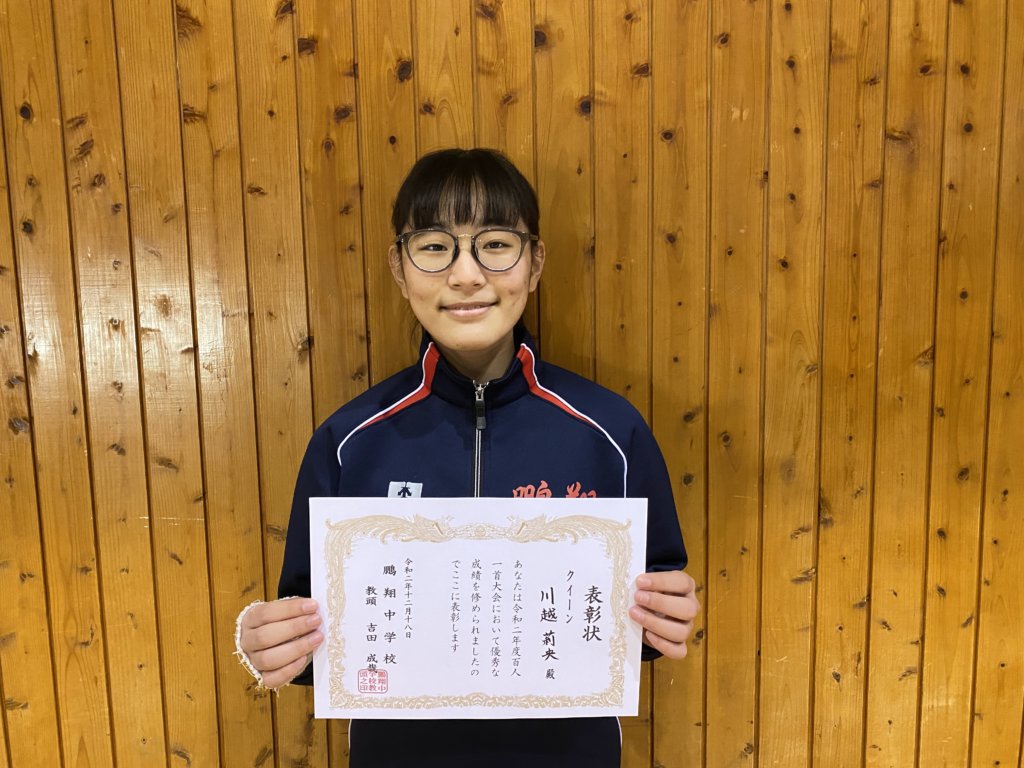 鵬翔
表彰状
クイーン
川越 莉央 殿
あなたは令和二年度百人
一首大会において優秀な
成績を修められましたの
でここに表彰します
令和二年十二月十八日
鵬翔中学校
教頭 吉田 成
鵬翔中
学校教
頭之印